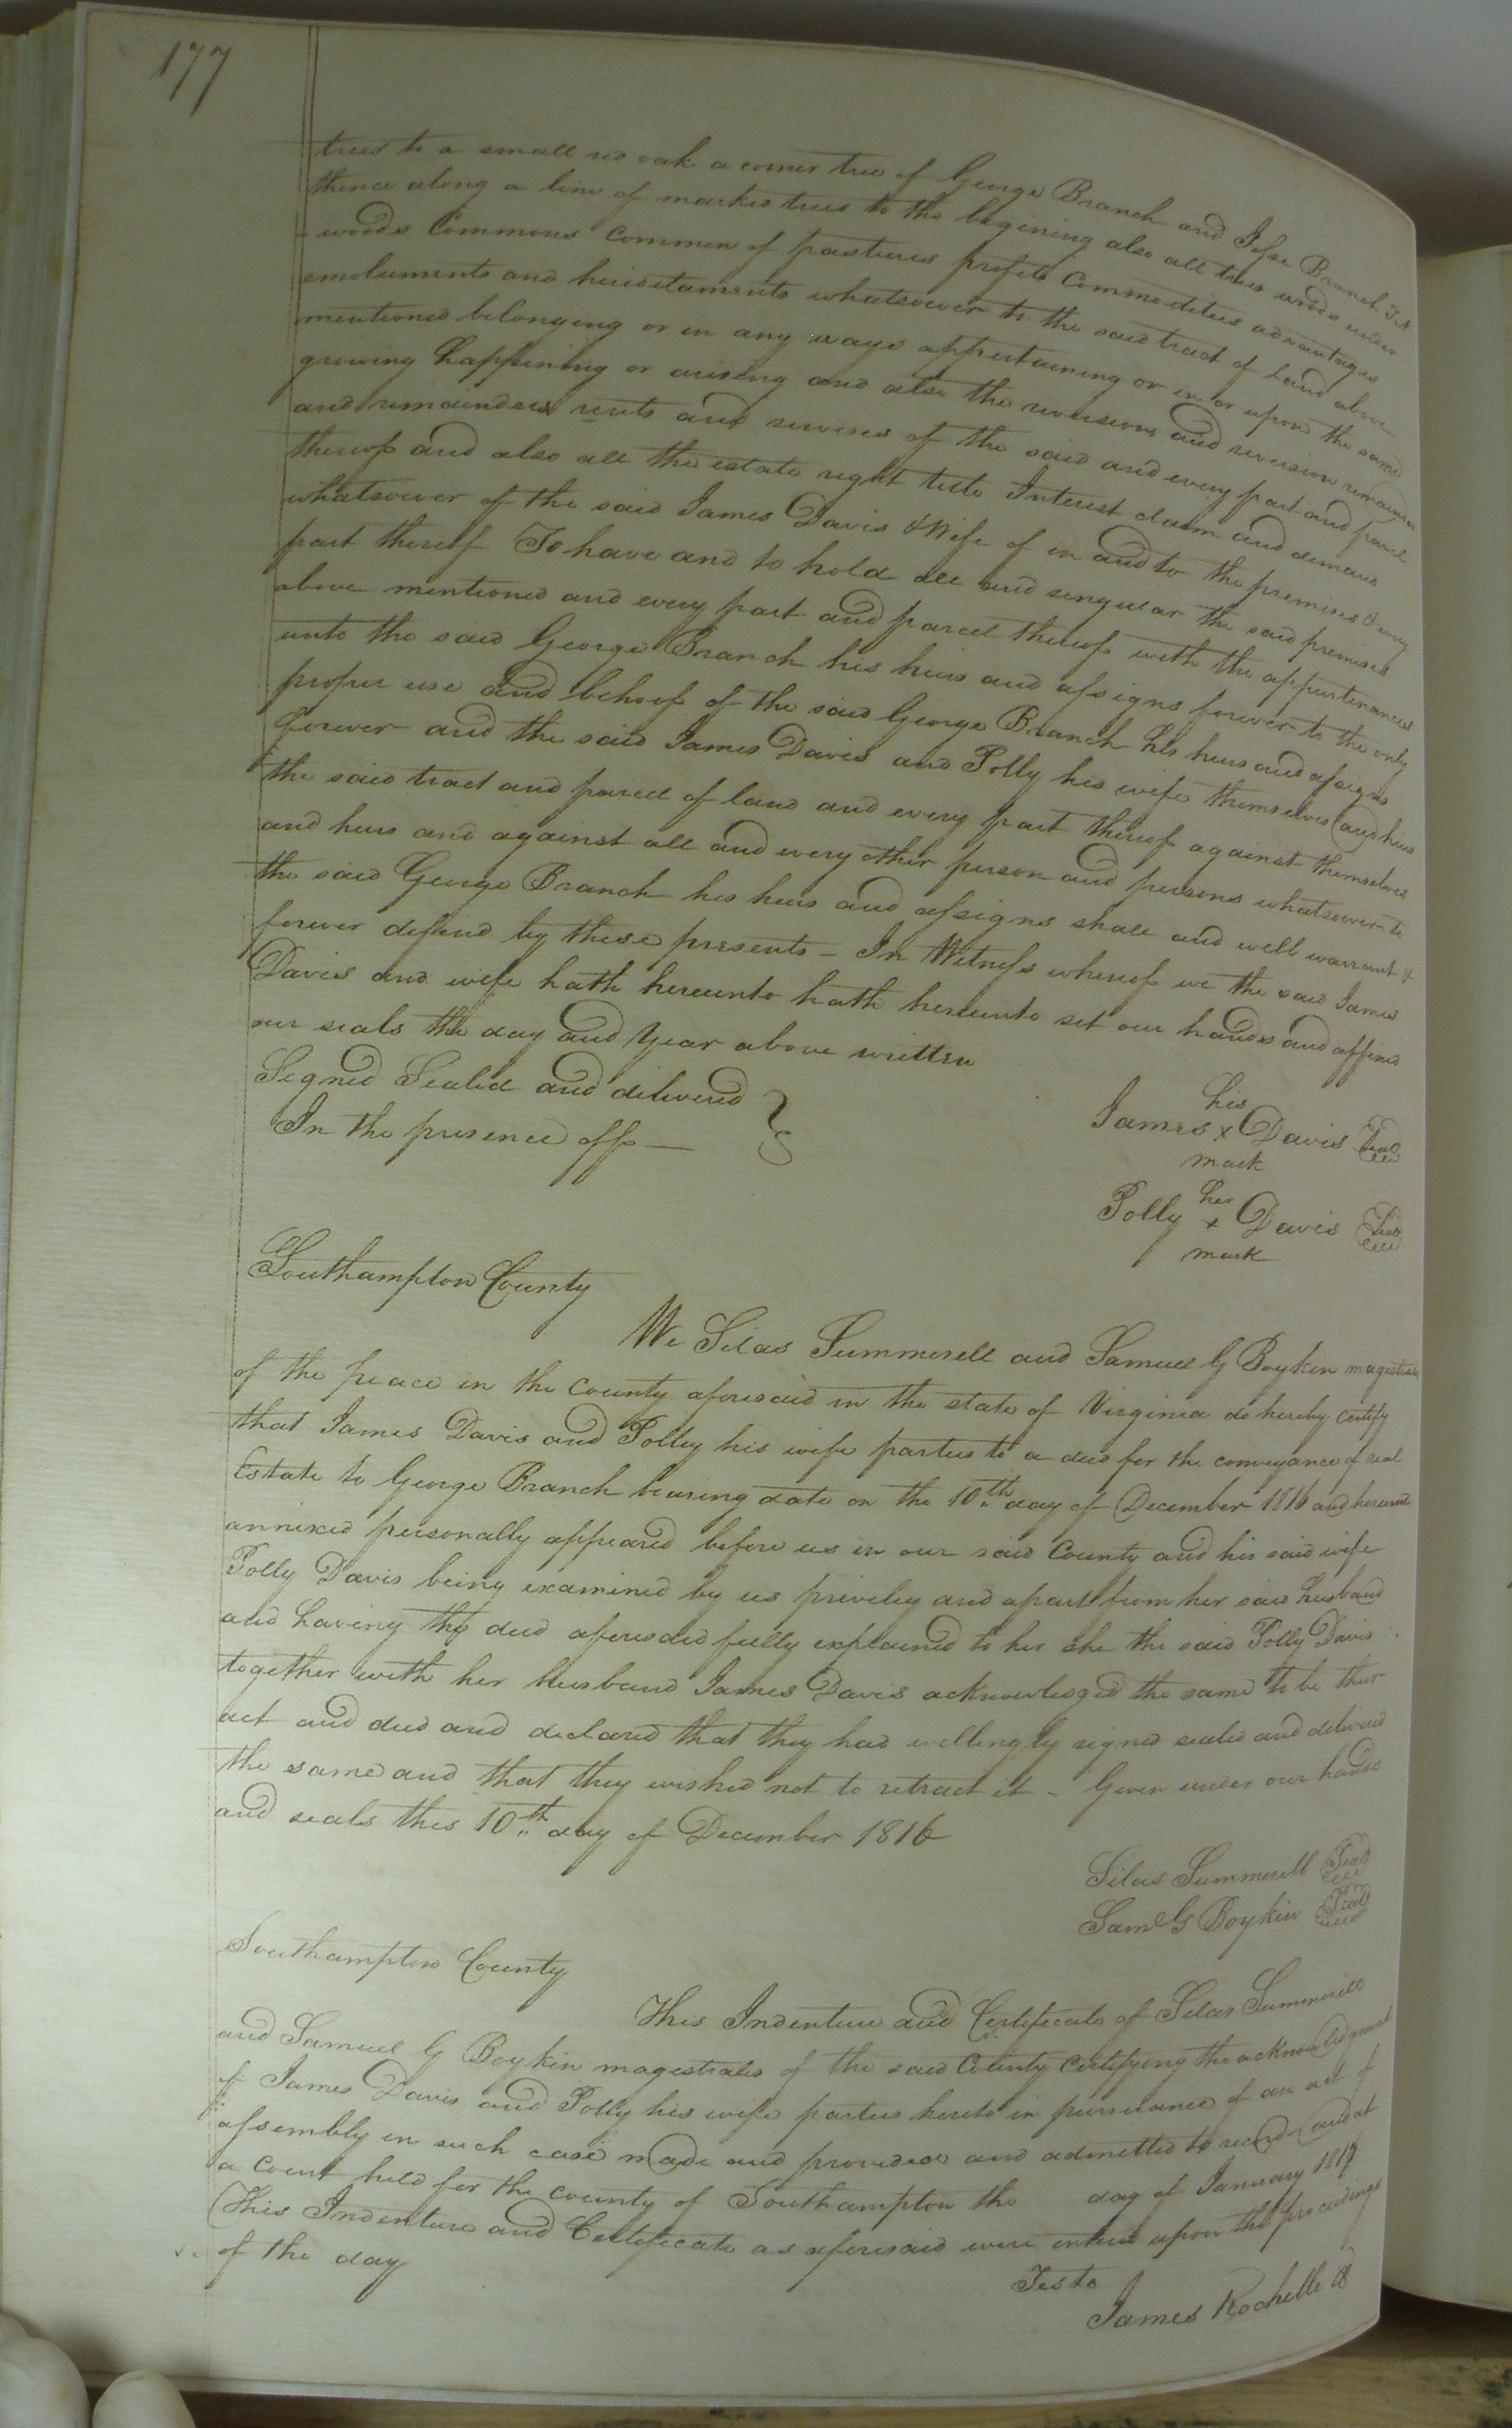 177
trees to a small red oak a corner tree of George Branch and Jesse Branch
thence along a line of marked trees to the begining also all trees woods under
woods Commons common of pastures profits Commodities advantages
emoluments and heriditaments whatsoever to the said tract of land above
mentioned belonging or in any ways appertaining or in or upon the same
growing happining or arising and also the reversions and reversion remainder
and remainders rents and services of the said and every part and parcel
thereof and also all the estate right title Interest claim and demand
whatsoever of the said James Davis & Wife of in and to the premises & every
part thereof To have and to hold all and singular the said premises
above mentioned and every part and parcel thereof with the appurtenances
unto the said George Branch his heirs and assigns forever to the only
proper use and behoof of the said George Branch his heirs and assigns
forever and the said James Davis and Polly his wife themselves and heirs
the said tract and parcel of land and every part thereof against themselves
and heirs and against all and every other person and persons whatsoever to
the said George Branch his heirs and assigns shall and well warrant &
forever defend by these presents - In Witness whereof we the said James
Davis and wife hath hereunto hath hereunto set our hands and affixed
our seals the day and Year above written
Signed Sealed and delivered
In the presence off
his
James x Davis Seal
mark
her
Polly x Davis Seal
mark
Southampton County
We Silas Summerell and Samuel G Boykin magistrates
of the peace in the County aforesaid in the state of Virginia do hereby certify
that James Davis and Polly his wife parties to a deed for the conveyance of real
Estate to George Branch bearing date on the 10th day of December 1816 and hereunto
annixed personally appeared before us in our said County and his said wife
Polly Davis being examined by us priviley and apart from her said husband
and having the deed aforesaid fully explained to her she the said Polly Davis
together with her husband James Davis acknowledged the same to be their
act and deed and declared that they had willingly signed sealed and delivered
the same and that they wished not to retract it - Given under our hands
and seals this 10th day of December 1816
Silas Summerill Seal
Saml G Boykin Seal
Southampton County
This Indenture and Certificate of Silas Summerill
and Samuel G Boykin magestrates of the said County certifying the acknowledgment
of James Davis and Polly his wife parties hereto in pursuance of an act of
assembly in such case made and provided and admitted to record and at
a Court held for the county of Southampton the day of January 1817
This Indenture and Certificate as aforesaid were entered upon the proceedings
of the day
Teste
James Rochelle